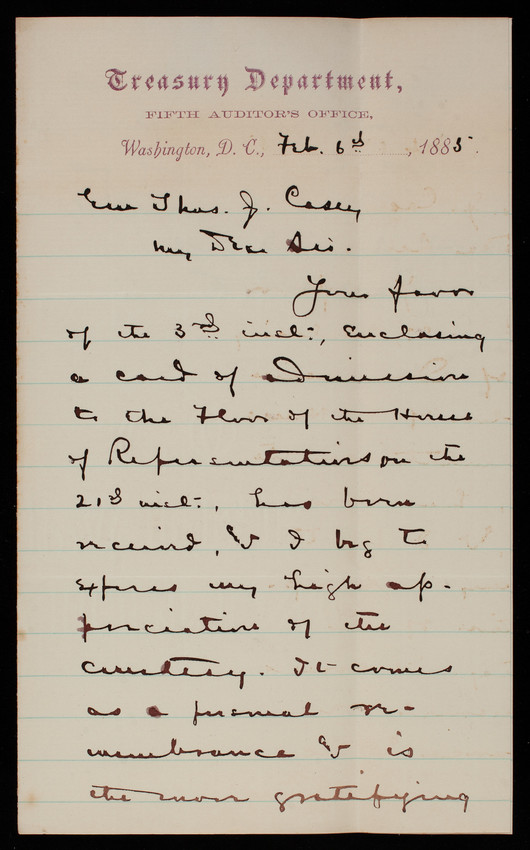 Treasury Department,
FIFTH AUDITOR'S OFFICE,
Washington, D. C., Feb. 6th, 1885.
Gen Thos. J. Casey
My Dear Sir.
Your favor
of the 3rd inst., enclosing
a card of admission
to the Floor of the House
of Representatives on the
21st inst., has been
received, & I beg to
express my high ap-
preciation of the
courtesy. It comes
as a personal re-
membrance & is
the more gratifying